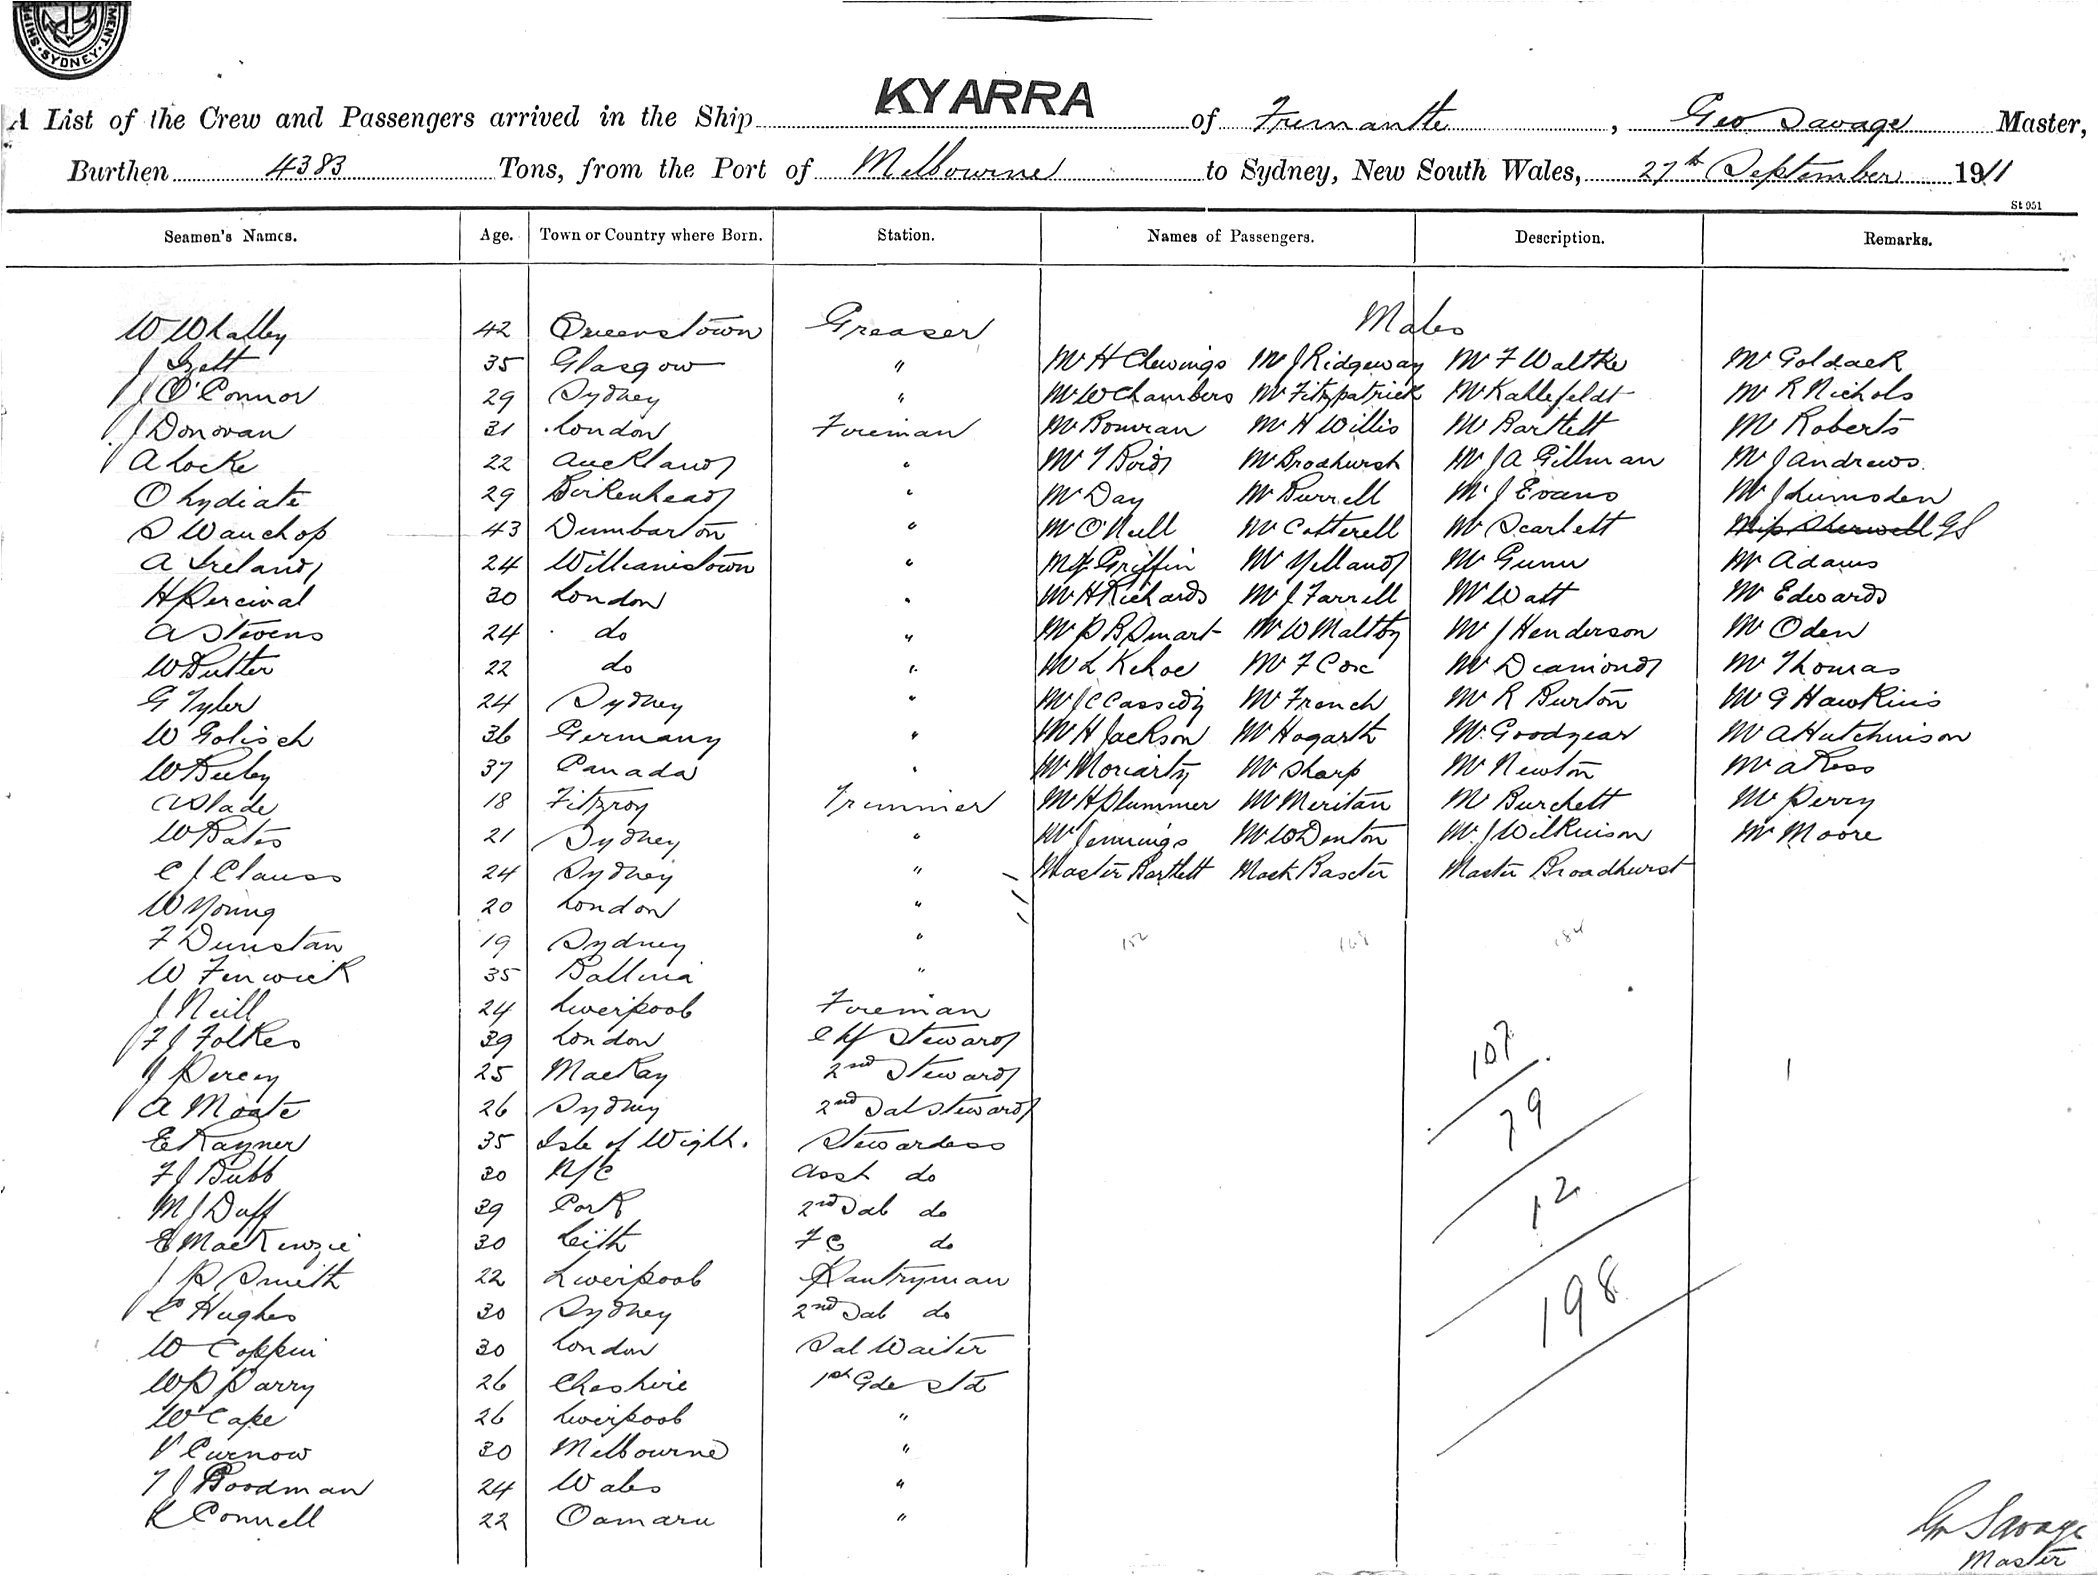 SHIP MENT · SYDNEY ·
KYARRA
A List of the Crew and Passengers arrived in the Ship KYARRA of Fremantle, Geo Savage Master,
Burthen 4383 Tons, from the Port of Melbourne to Sydney, New South Wales, 27th September 1911
St 951
Seamen's Names. Age. Town or Country where Born. Station. Names of Passengers. Description. Remarks.
W Whalley 42 Queenstown Greaser Males
J 35 Glasgow " Mr H Chewings Mr J Ridgeway Mr F Waltke Mr Goldack
J O'Connor 29 Sydney " Mr W Chambers Mr Fitzpatrick Mr Kahlefeldt Mr R Nichols
J Donovan 31 London Fireman Mr Bowran Mr H Willis Mr Bartlett Mr Roberts
A Locke 22 Auckland " Mr T Boid Mr Brodhurst Mr J A Gillman Mr J Andrews
O Lydiate 29 Birkenhead " Mr Day Mr Burrell Mr J Evans Mr J Lumsden
S Wauchop 43 Dumbarton " Mr O'Neill Mr Cotterell Mr Scarlett Miss Sherwell GS
A Ireland 24 Williamstown " Mr Griffin Mr Yelland Mr Gunn Mr Adams
H Percival 30 London " Mr H Richards Mr J Farrell Mr Watt Mr Edwards
A Stevens 24 do " Mr P B Smart Mr W Maltby Mr J Henderson Mr Oden
W Butler 22 do " Mr L Kehoe Mr F Cox Mr Diamond Mr Thomas
G Tyler 24 Sydney " Mr J C Cassidy Mr French Mr R Burton Mr G Hawkins
W Golisch 36 Germany " Mr H Jackson Mr Hogarth Mr Goodyear Mr A Hutchinson
W Beeby 37 Canada " Mr Moriarty Mr Sharp Mr Newton Mr A Ross
A Slade 18 Fitzroy Trimmer Mr H Plummer Mr Meritan Mr Burchett Mr Perry
W Bates 21 Sydney " Mr Jennings Mr W Denton Mr J Wilkinson Mr Moore
C J Clauss 24 Sydney " Master Bartlett Mast Baxter Master Broadhurst
W Young 20 London "
F Dunstan 19 Sydney " 152 168 184
W Fenwick 35 Ballina "
J Neill 24 Liverpool Fireman
F J Folkes 39 London Chf Steward 107
J Percy 25 Mackay 2nd Steward 1
A Moate 26 Sydney 2nd Sal Steward 79
E Rayner 35 Isle of Wight. Stewardess
F J Bubb 30 N/C Asst do
M J Duff 39 Cork 2nd Sal do 12
E MacKenzie 30 Leith F C do
J P Smith 22 Liverpool Pantryman
C Hughes 30 Sydney 2nd Sal do 198
W Coppin 30 London Sal Waiter
W P Parry 26 Cheshire 1st Gde Std
W Cape 26 Liverpool "
V Curnow 30 Melbourne "
T J Goodman 24 Wales "
K Connell 22 Oamaru "
Geo Savage
Master